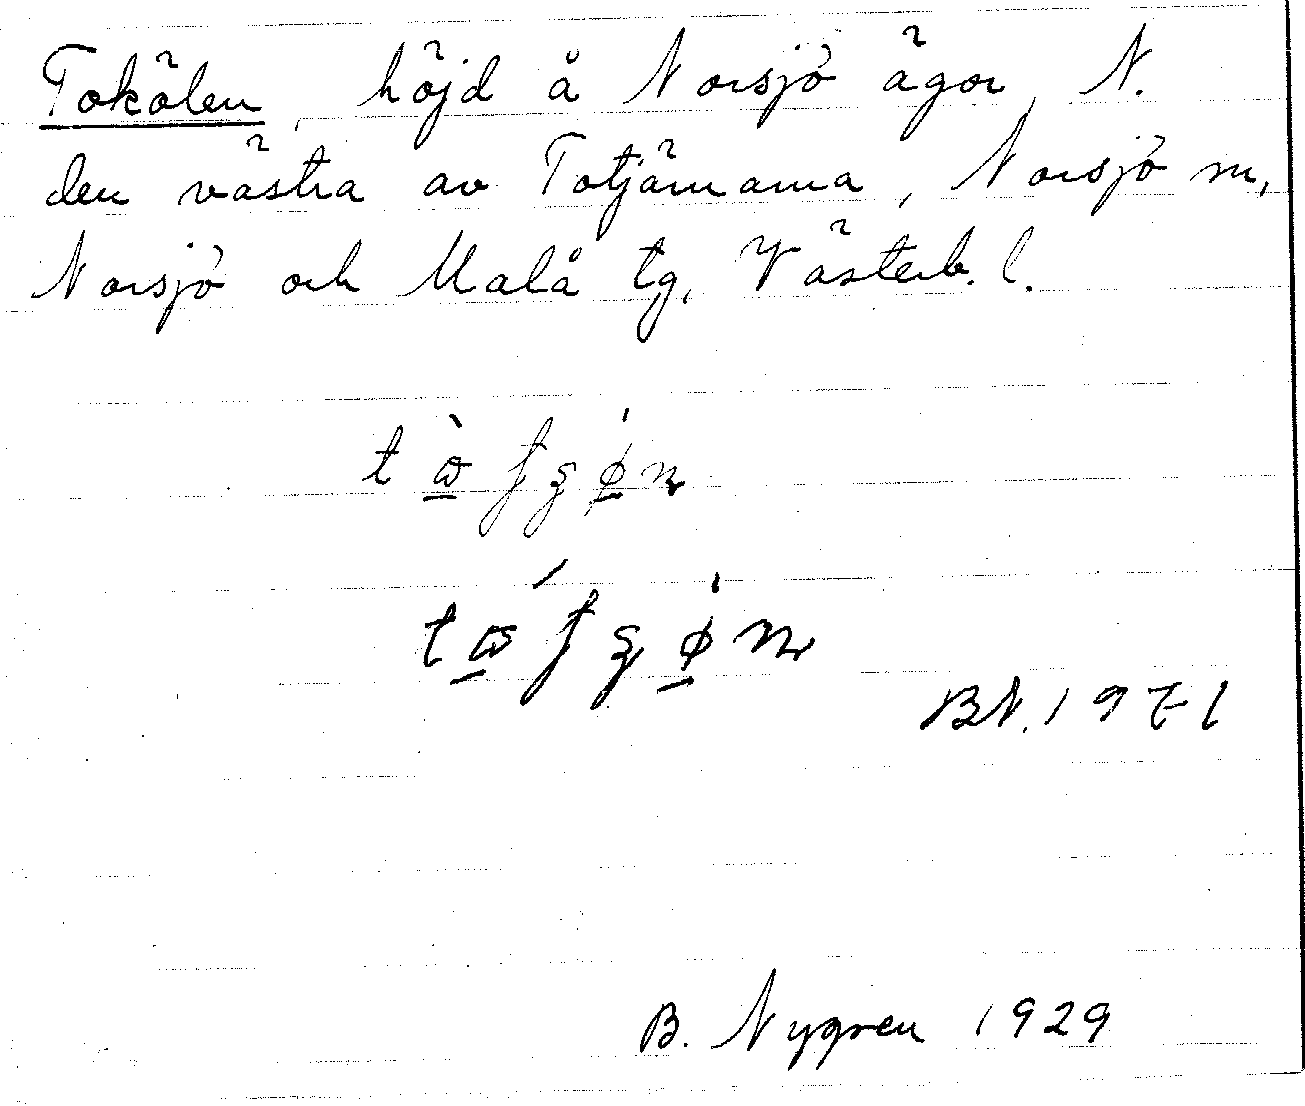 Tokölen, höjd å Norsjö ägor, N.
den västra av Totjärnarna, Norsjö sn,
Norsjö och Malå tg, Västerb. l.
B. N. 1971
B. Nygren 1929